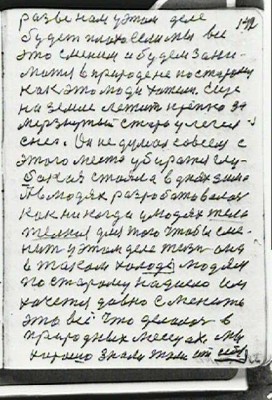 разве нам у этом деле
будет плохо если мы все
это сменим и будем зани-
маться в природе не по старому
как это люди хотим Еще
на земле лежит крепко за
мерзнутый старо улегся
снег. Он не думал совсем с
этого места убираться глу-
бокая стояла в днях зима
На людях разработовалася
как никогда у людях
для того чтобы сме-
нить у этом деле
в таком холоде людям
по старому надоело им
хочется давно сменить
это все что делалося в
природных местах мы
хорошо знали